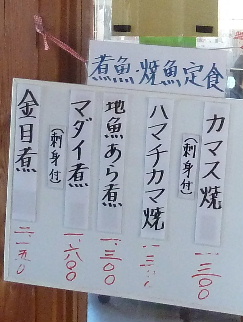 煮魚・焼魚定食
カマス焼
(刺身付)
一、三〇〇
ハマチカマ焼
一、三〇〇
地魚あら煮
一、三〇〇
マダイ煮
(刺身付)
一、六〇〇
金目煮